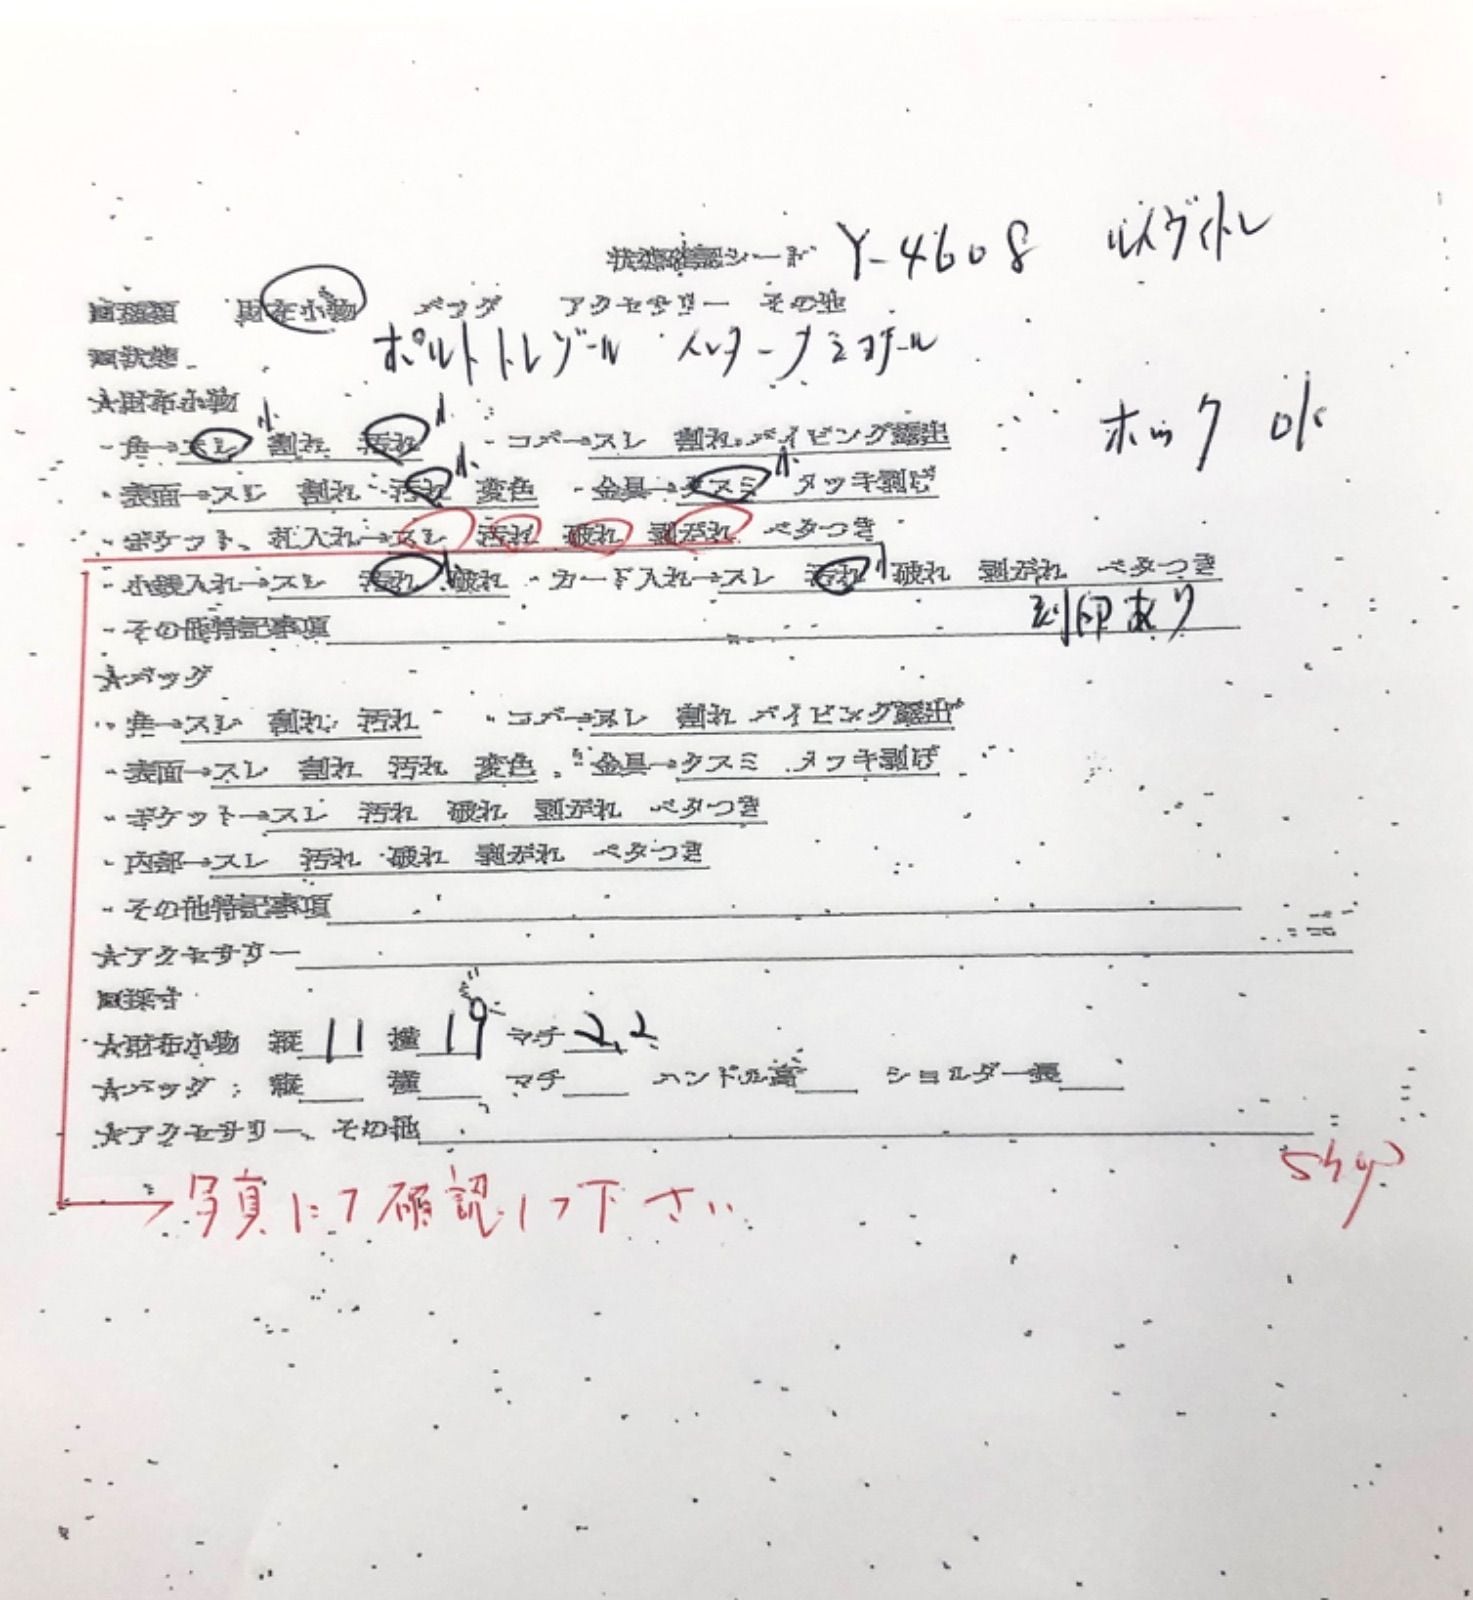 状態確認シート Y-4608 ルイヴィトン
■種類 財布小物 バッグ アクセサリー その他
■状態 ポルトトレゾール インターナショナル
★財布小物
・角→スレ 小 割れ 汚れ 小 ・コバ→スレ 割れ パイピング露出 ホック ok
・表面→スレ 割れ 汚れ 小 変色 ・金具→クスミ 小 メッキ剥げ
・ポケット、札入れ→スレ 汚れ 破れ 剥がれ ベタつき
・小銭入れ→スレ 汚れ 小 破れ ・カード入れ→スレ 汚れ 小 破れ 剥がれ ベタつき
・その他特記事項 刻印あり
★バッグ
・角→スレ 割れ 汚れ ・コバ→スレ 割れ パイピング露出
・表面→スレ 割れ 汚れ 変色 ・金具→クスミ メッキ剥げ
・ポケット→スレ 汚れ 破れ 剥がれ ベタつき
・内部→スレ 汚れ 破れ 剥がれ ベタつき
・その他特記事項
★アクセサリー
■採寸
★財布小物 縦 11 横 19 マチ 2.2
★バッグ 縦 横 マチ ハンドル高 ショルダー長
★アクセサリー、その他
写真にて確認して下さい